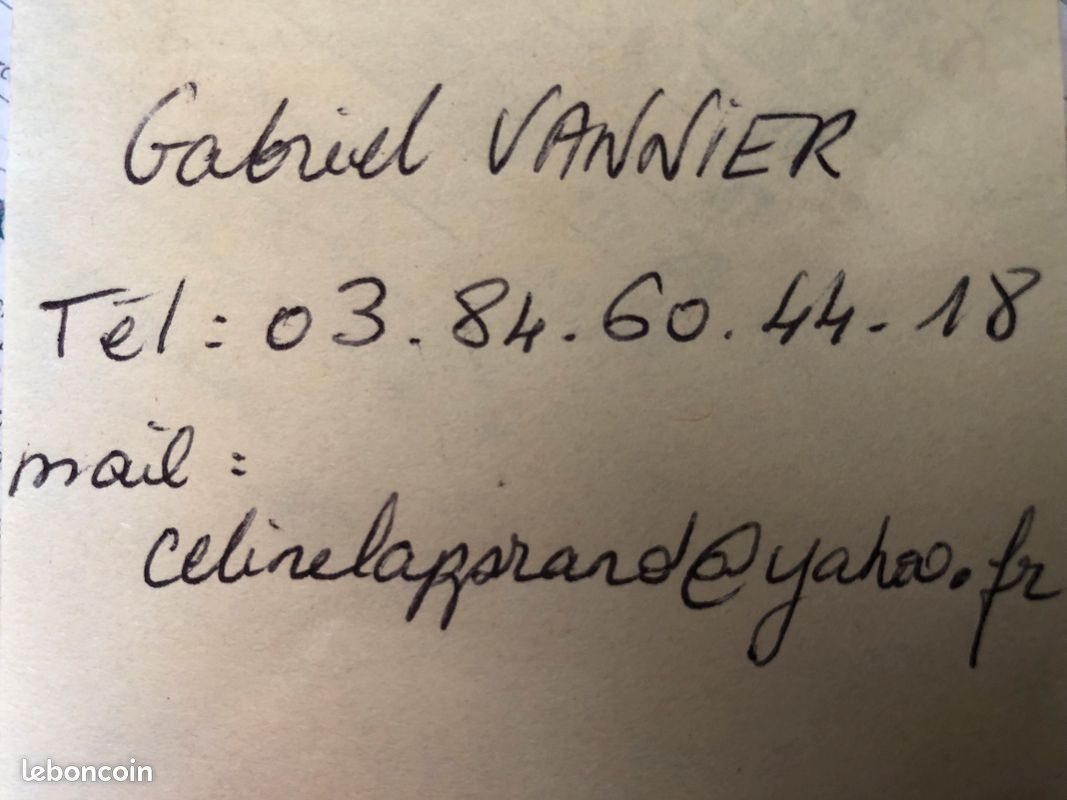 Gabriel VANNIER
Tél : 03.84.60.44.18
mail :
celinelapprand@yahoo.fr
leboncoin